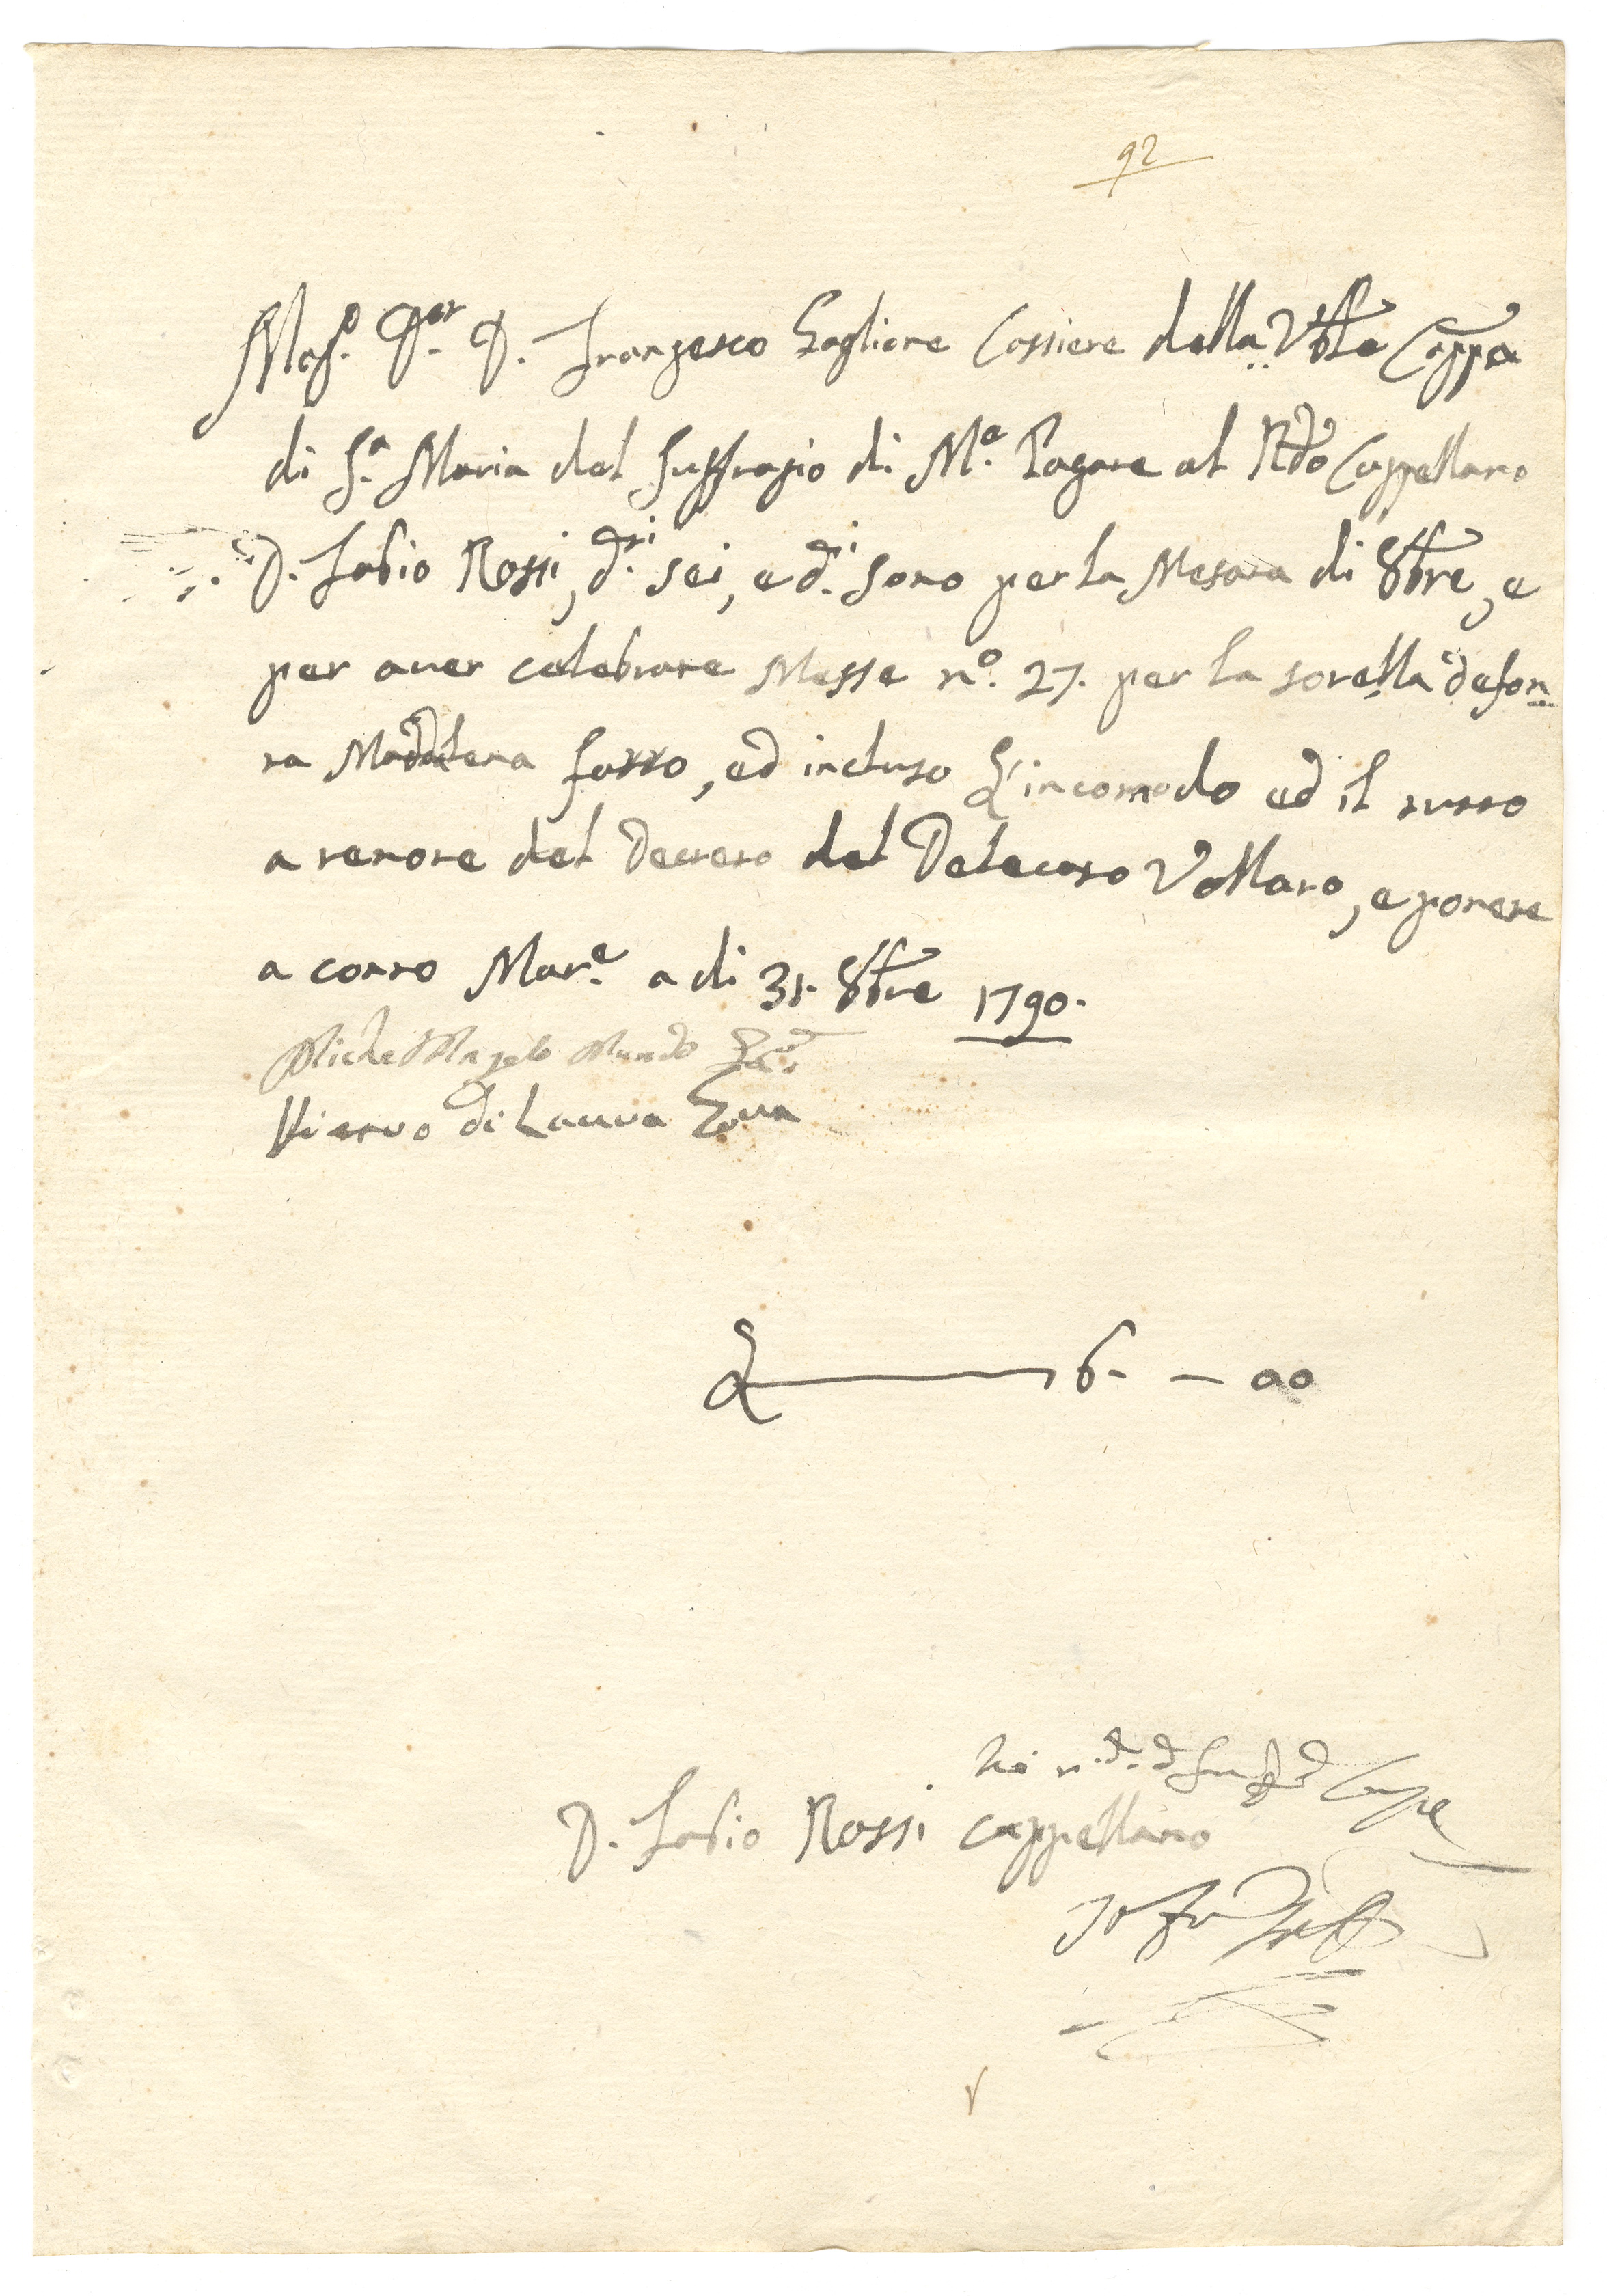 92
Mag.co D.or D. Francesco Gaglione Cassiere della Vble Cappa
di S.a Maria del Suffragio di M.e Pagate al Rdo Cappellano
D. Fabio Rossi, d.ti sei, e d.ti sono per la Mesata di 8bre, e
per aver celebrate Messe n.o 27. per la sorella defon=
ta Maddalena fatto, ed incluso l'incomodo ed il tutto
a tenore del Decreto del Delecato Vollaro, e ponete
a conto Mar.e a di 31. 8bre 1790.
Michel Angelo Mundo
di Lauva
6 - 00
D. Fabio Rossi Cappellano